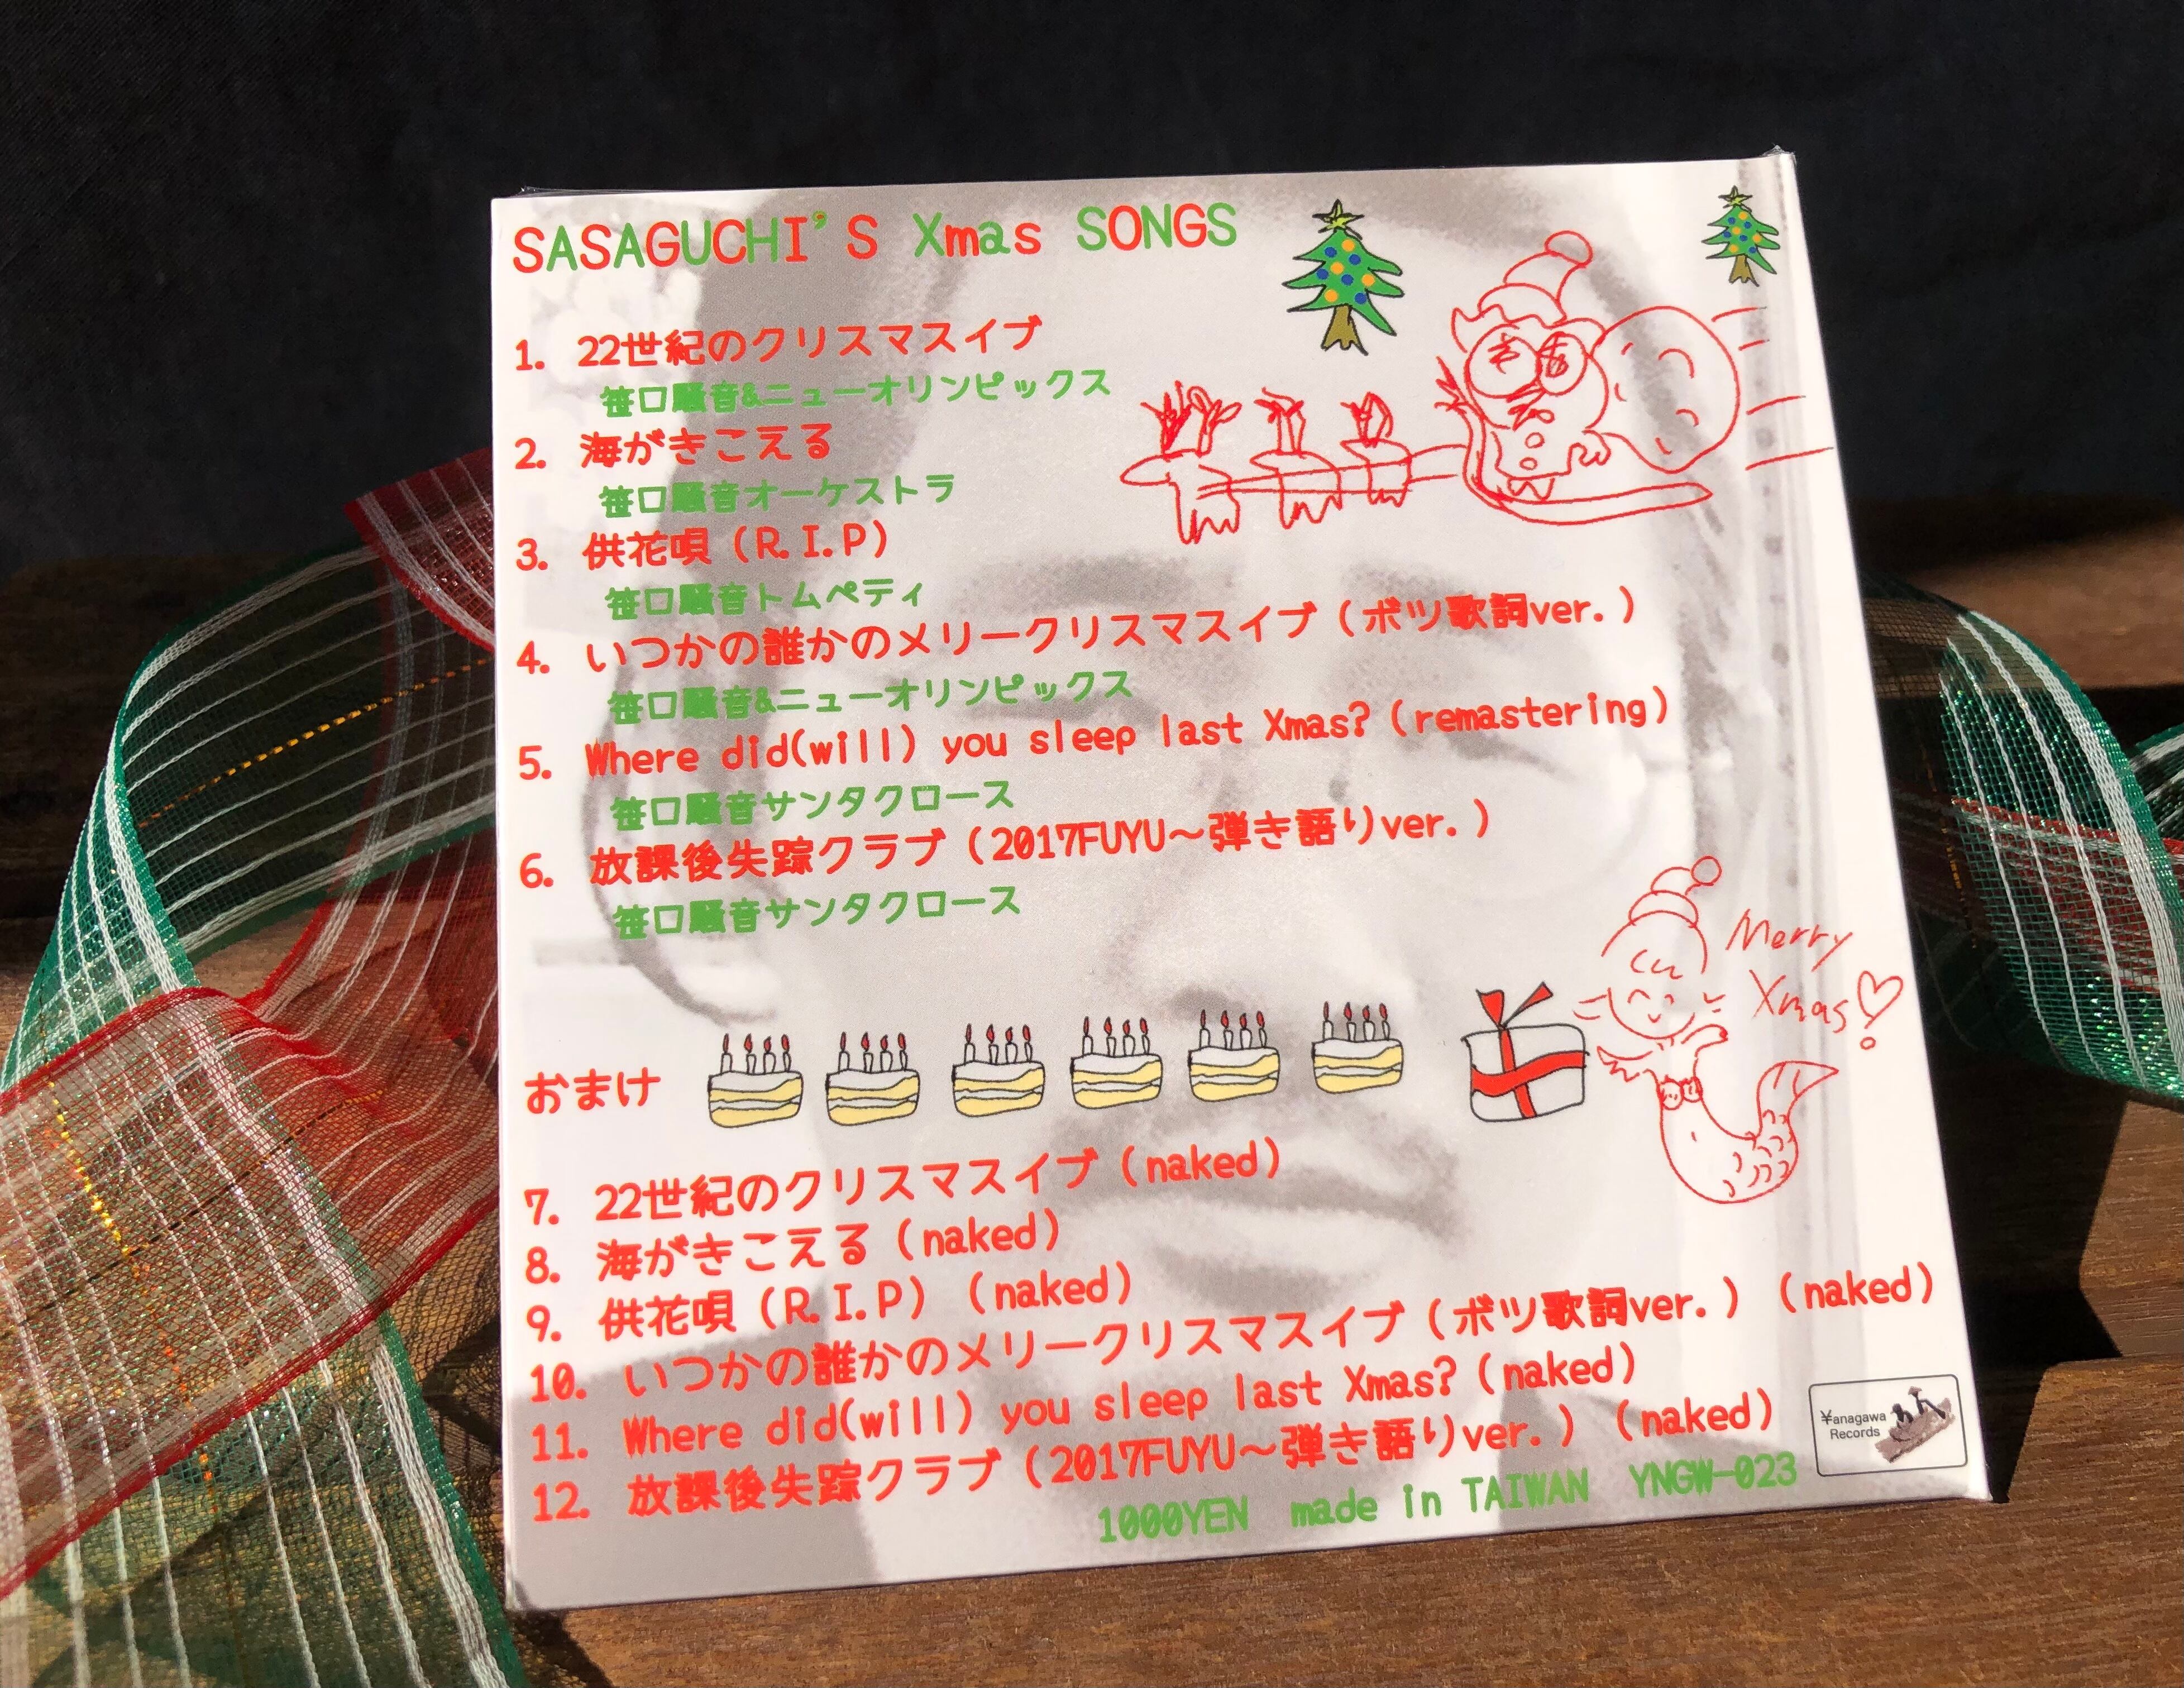 SASAGUCHI'S Xmas SONGS
1. 22世紀のクリスマスイブ
笹口騒音&ニューオリンピックス
2. 海がきこえる
笹口騒音オーケストラ
3. 供花唄（R.I.P）
笹口騒音トムペティ
4. いつかの誰かのメリークリスマスイブ（ボツ歌詞ver.）
笹口騒音&ニューオリンピックス
5. Where did(will) you sleep last Xmas?（remastering）
笹口騒音サンタクロース
6. 放課後失踪クラブ（2017FUYU～弾き語りver.）
笹口騒音サンタクロース
Merry
Xmas♡
おまけ
7. 22世紀のクリスマスイブ（naked）
8. 海がきこえる（naked）
9. 供花唄（R.I.P）（naked）
10. いつかの誰かのメリークリスマスイブ（ボツ歌詞ver.）（naked）
11. Where did(will) you sleep last Xmas?（naked）
12. 放課後失踪クラブ（2017FUYU～弾き語りver.）（naked）
¥anagawa
Records
1000YEN made in TAIWAN YNGW-023